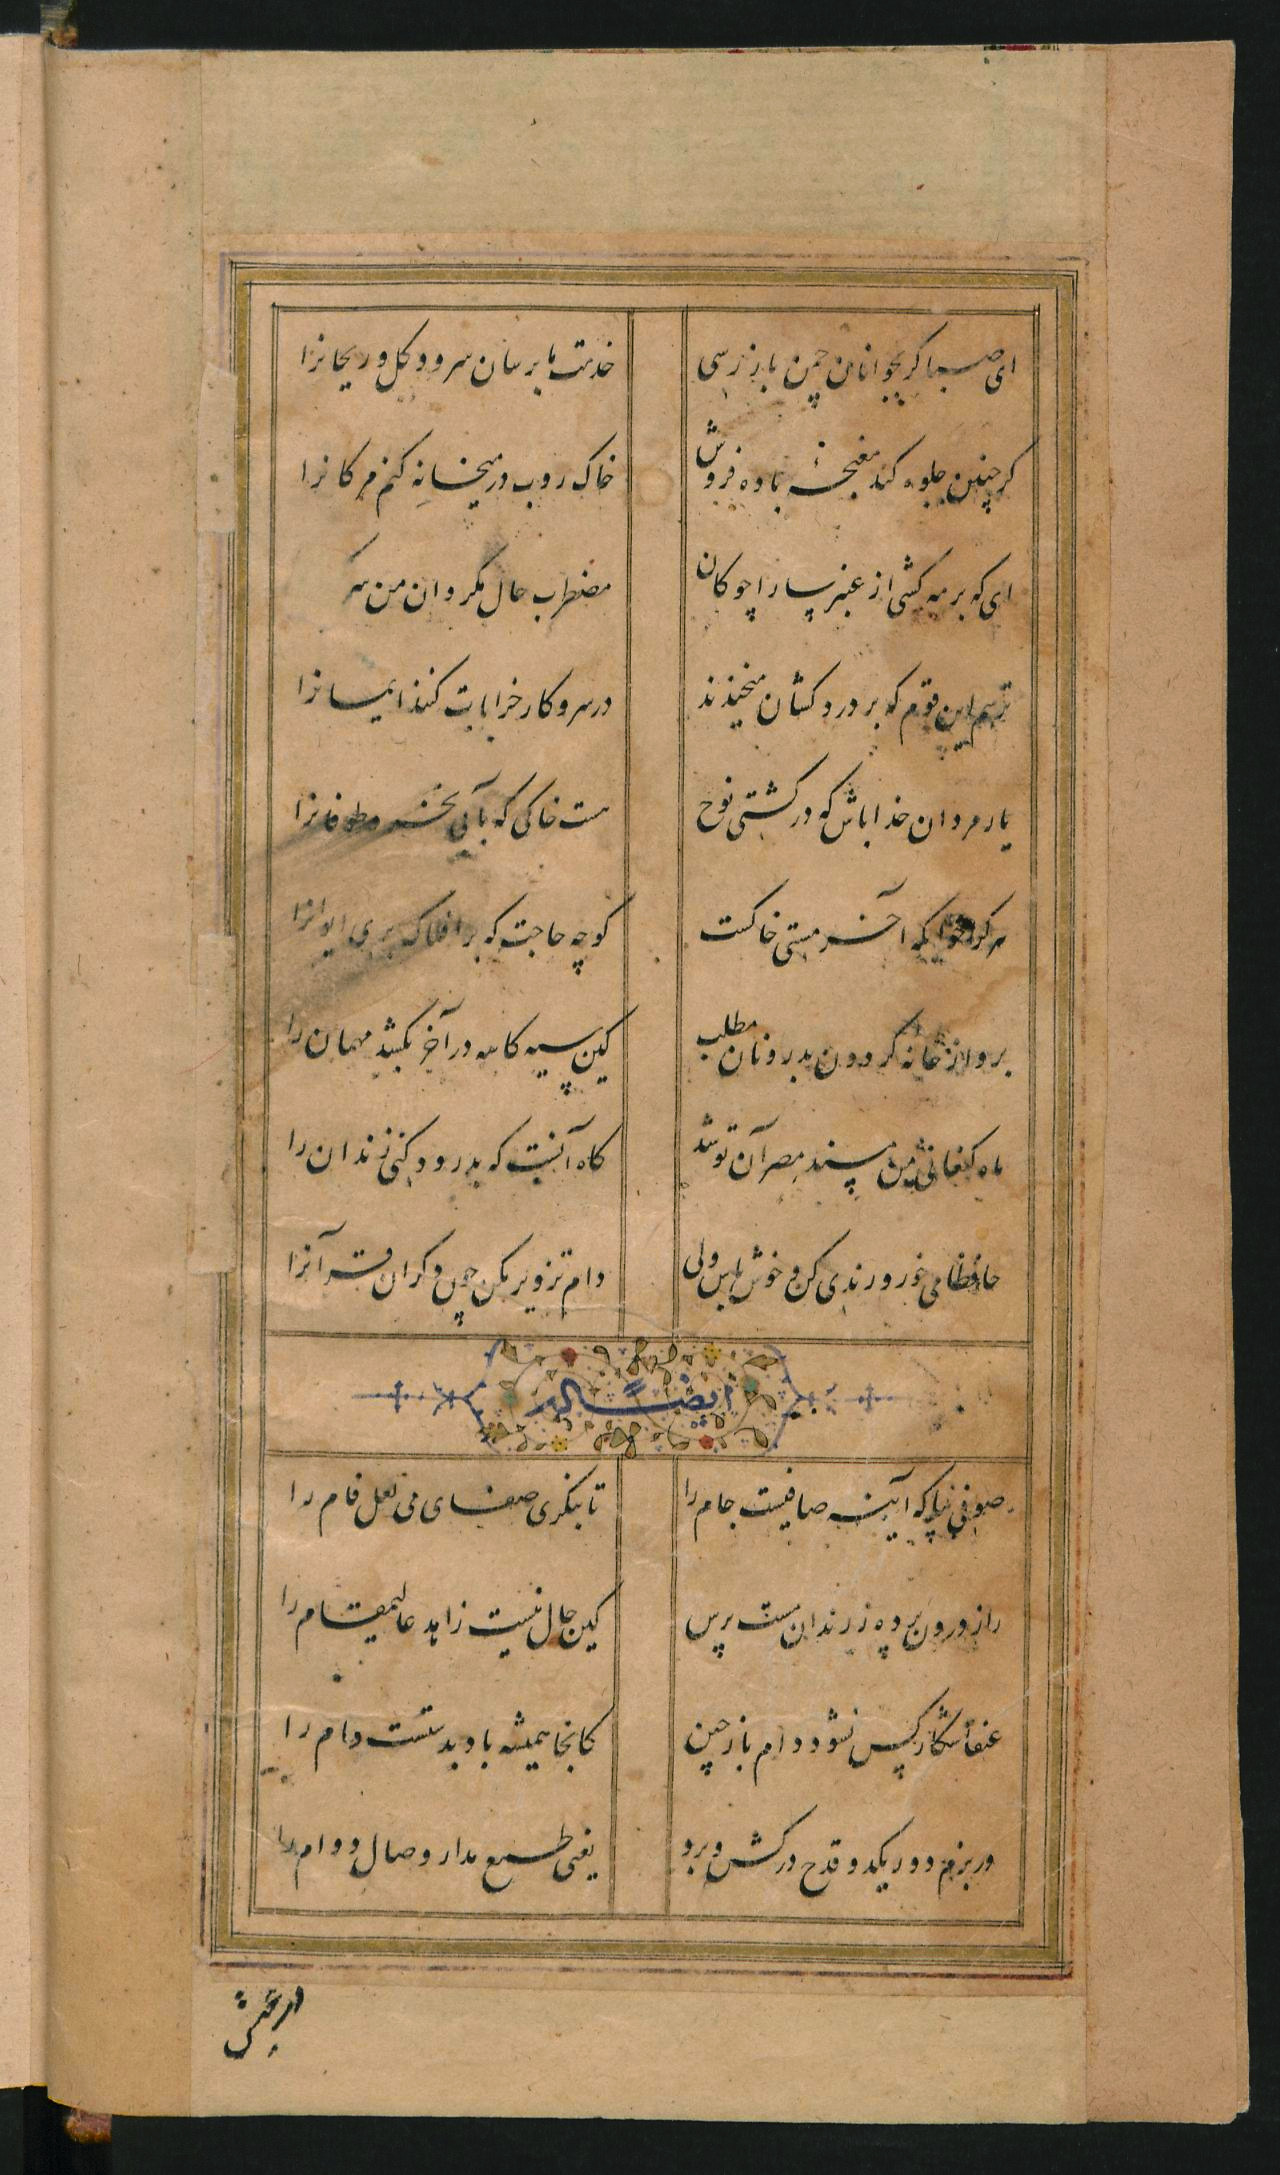 ای صبا گر بجوانان چمن باز رسی خدمت ما برسان سرو و گل و ریحانرا
گر چنین جلوه کند مغبچهٔ باده فروش خاک روب در میخانه کنم مژگانرا
ای که بر مه کشی از عنبر سارا چوگان مضطرب حال مگردان من سر
ترسم این قوم که بر دردکشان میخندند در سر و کار خرابات کنند ایمانرا
یار مردان خدا باش که در کشتی نوح هست خاکی که بآبی نخرد طوفانرا
هر کرا خوابگه آخر مشتی خاکست گو چه حاجت که بر افلاک بری ایوانرا
برو از خانه گردون بدر و نان مطلب کین سیه کاسه در آخر بکشد مهمان را
ماه کنعانی من مسند مصر آن تو شد گاه آنست که بدرود کنی زندان را
حافظا می خور و رندی کن و خوش باش ولی دام تزویر مکن چون دگران قرآنرا
ایضاً له
صوفی بیا که آینه صافیست جام را تا بنگری صفای می لعل فام را
راز درون پرده ز رندان مست پرس کین حال نیست زاهد عالیمقام را
عنقا شکار کس نشود دام باز چین کانجا همیشه باد بدستست دام را
در بزم دور یکدو قدح درکش و برو یعنی طمع مدار وصال دوام را